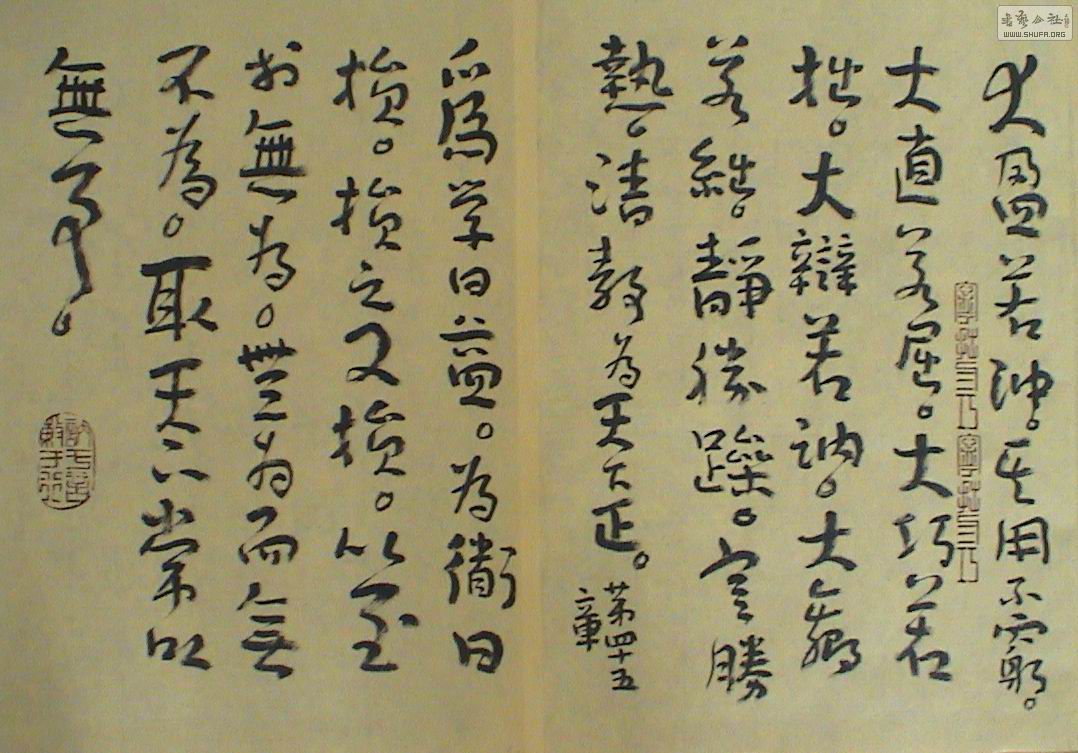 大盈若沖。其用不窮。
大直若屈。大巧若
拙。大辯若訥。大贏
若絀。靜勝躁。寒勝
熱。清靜為天下正。
第四十五章
爲学日益。為衜日
損。損之又損。以至
於無為。無為而無
不為。取天下常以
無事。
书艺公社
WWW.SHUFA.ORG